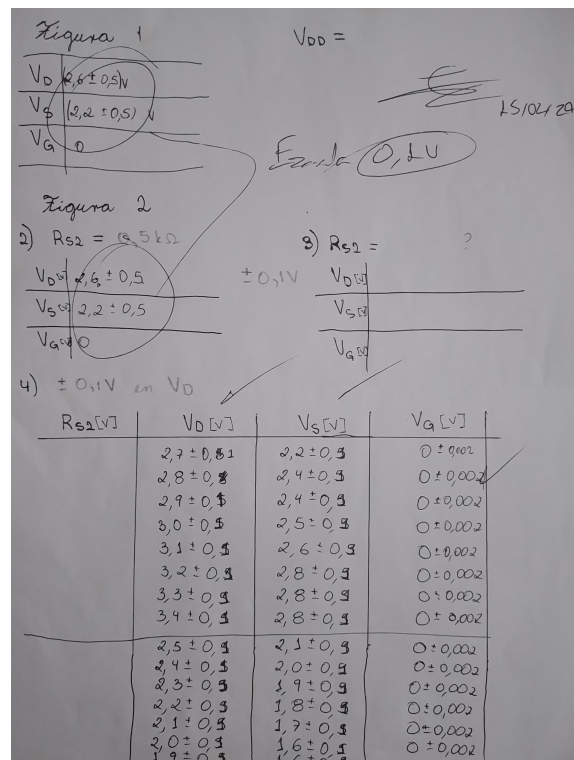 Figura 1
VDD =
VD (2,6 ± 0,5)V
VS (2,2 ± 0,5) V
VG 0
0,1V
Figura 2
2) RS2 = 0,5 kΩ
VD[V] 2,6 ± 0,5
VS[V] 2,2 ± 0,5
VG[V] 0
± 0,1V
3) RS2 = ?
VD[V]
VS[V]
VG[V]
4) ± 0,1V en VD
RS2[V] VD[V] VS[V] VG[V]
2,7 ± 0,1 2,2 ± 0,1 0 ± 0,002
2,8 ± 0,1 2,4 ± 0,1 0 ± 0,002
2,9 ± 0,1 2,4 ± 0,1 0 ± 0,002
3,0 ± 0,1 2,5 ± 0,1 0 ± 0,002
3,1 ± 0,1 2,6 ± 0,1 0 ± 0,002
3,2 ± 0,1 2,8 ± 0,1 0 ± 0,002
3,3 ± 0,1 2,8 ± 0,1 0 ± 0,002
3,4 ± 0,1 2,8 ± 0,1 0 ± 0,002
2,5 ± 0,1 2,1 ± 0,1 0 ± 0,002
2,4 ± 0,1 2,0 ± 0,1 0 ± 0,002
2,3 ± 0,1 1,9 ± 0,1 0 ± 0,002
2,2 ± 0,1 1,8 ± 0,1 0 ± 0,002
2,1 ± 0,1 1,7 ± 0,1 0 ± 0,002
2,0 ± 0,1 1,6 ± 0,1 0 ± 0,002